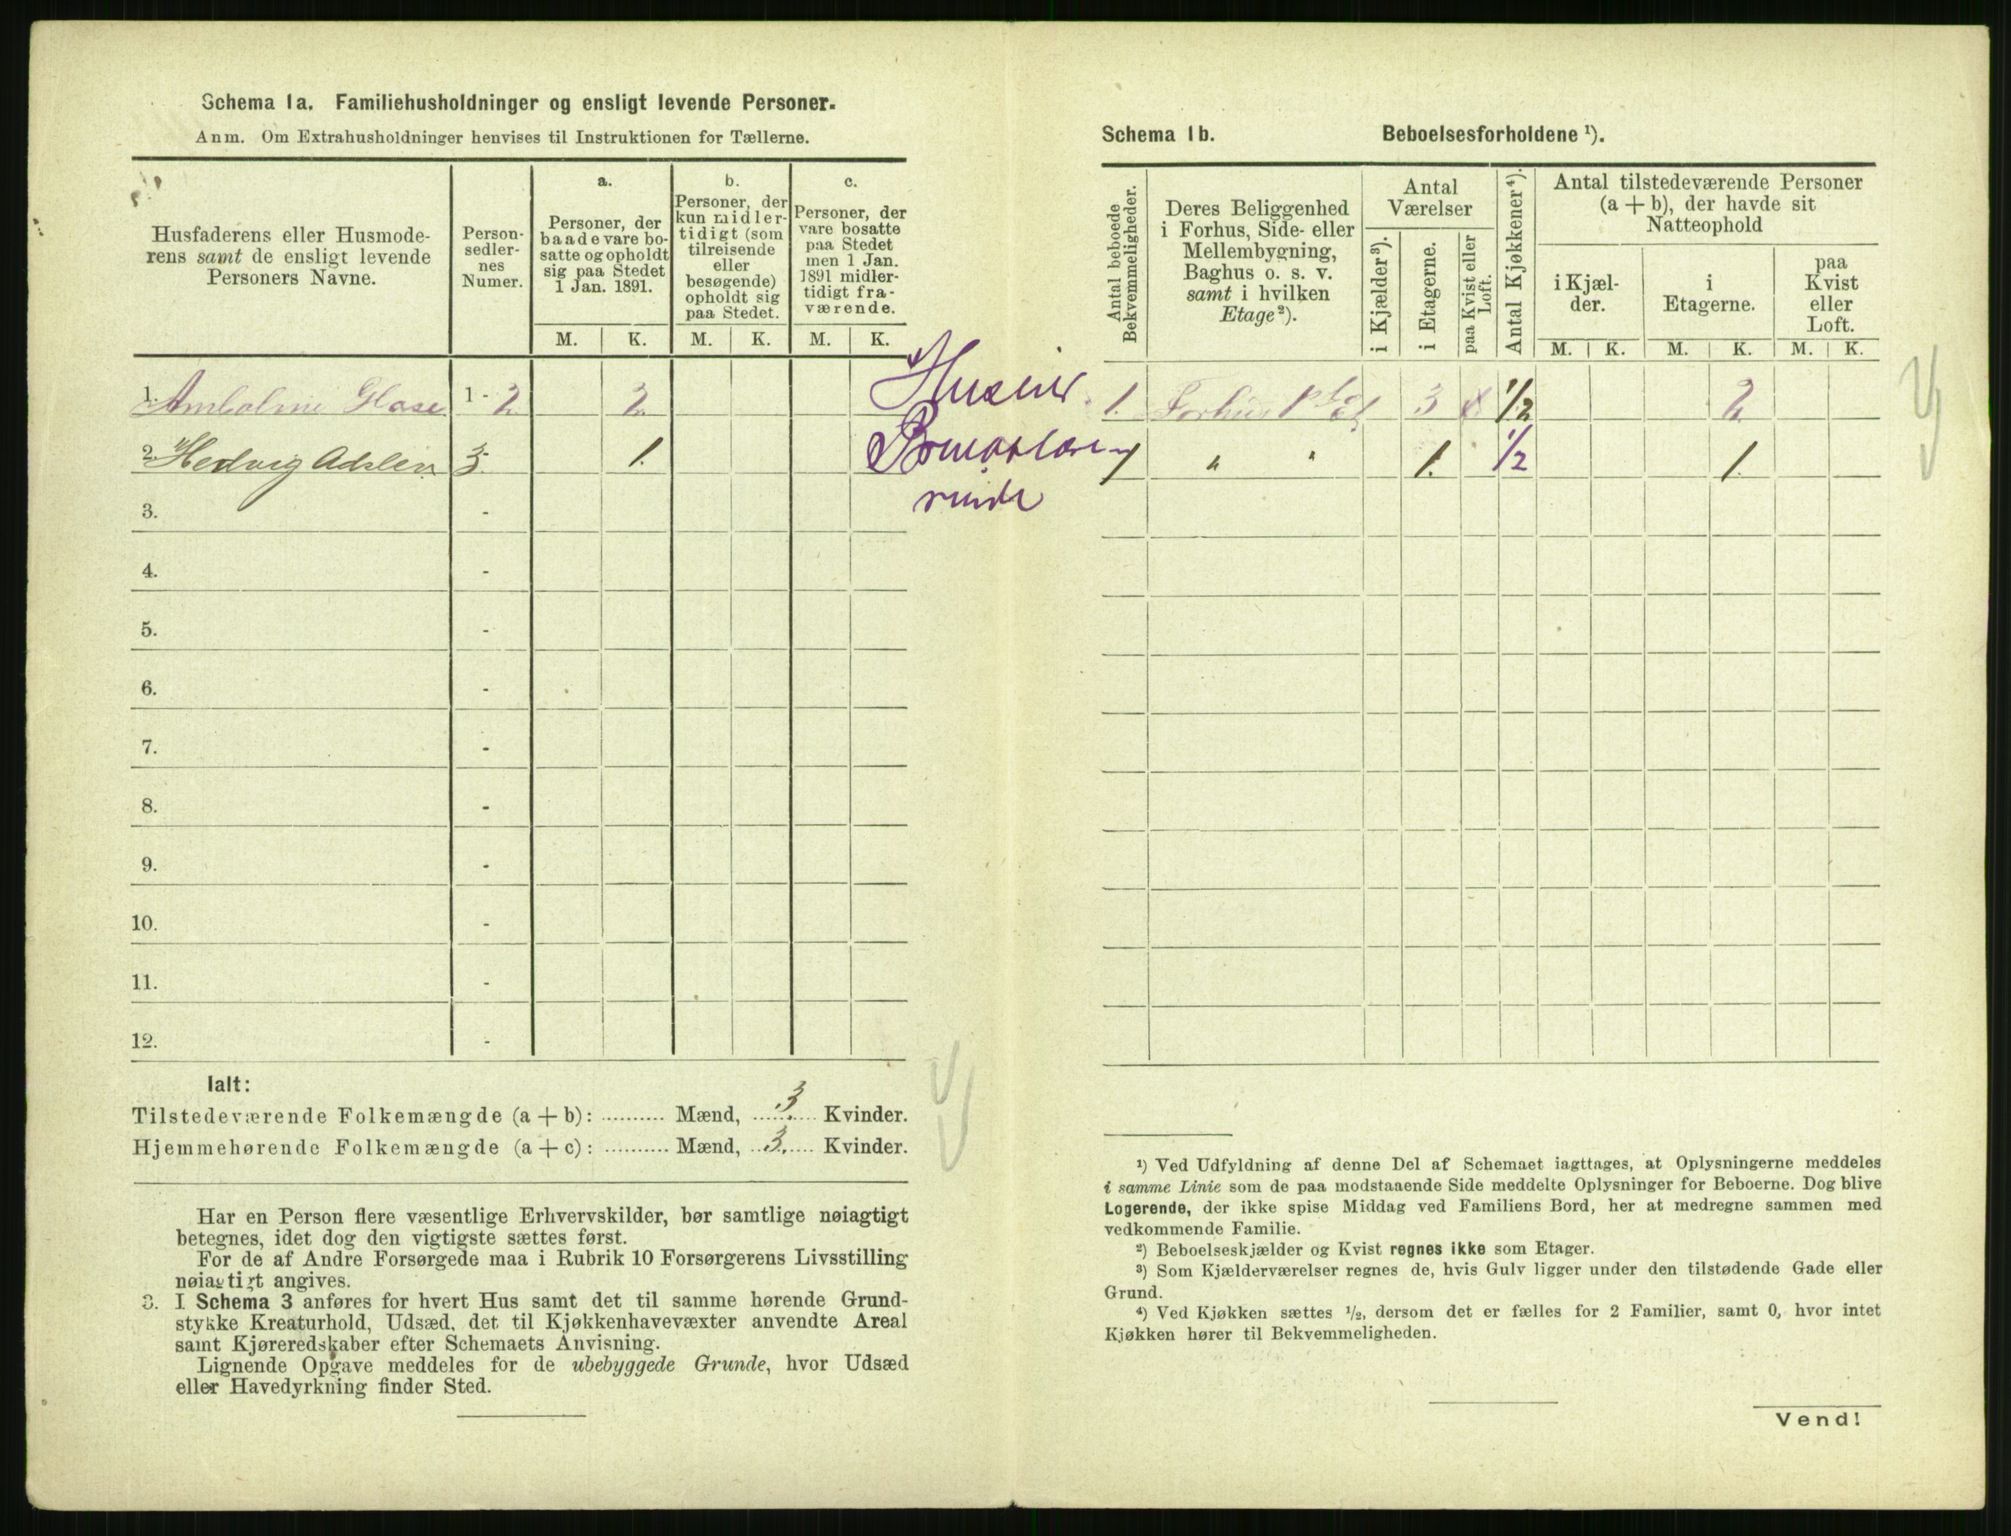 Schema 1a. Familiehusholdninger og ensligt levende Personer.
Anm. Om Extrahusholdninger henvises til Instruktionen for Tællerne.
Husfaderens eller Husmode-
rens samt de ensligt levende
Personers Navne.
Person-
sedler-
nes
Numer.
a.
Personer, der
baade vare bo-
satte og opholdt
sig paa Stedet
1 Jan. 1891.
b.
Personer, der
kun midler-
tidigt (som
tilreisende
eller
besøgende)
opholdt sig
paa Stedet.
c.
Personer, der
vare bosatte
paa Stedet
men 1 Jan.
1891 midler-
tidigt fra-
værende.
M. K. M. K. M. K.
1. 1 - 2 2
2. Hedvig 3 1.
3. -
4. -
5. -
6. -
7. -
8. -
9. -
10. -
11. -
12. -
Ialt:
Tilstedeværende Folkemængde (a + b): .......... Mænd, 3 Kvinder.
Hjemmehørende Folkemængde (a + c): .......... Mænd, 3. Kvinder.
Har en Person flere væsentlige Erhvervskilder, bør samtlige nøiagtigt
betegnes, idet dog den vigtigste sættes først.
For de af Andre Forsørgede maa i Rubrik 10 Forsørgerens Livsstilling
nøiagtigt angives.
3. I Schema 3 anføres for hvert Hus samt det til samme hørende Grund-
stykke Kreaturhold, Udsæd, det til Kjøkkenhavevæxter anvendte Areal
samt Kjøreredskaber efter Schemaets Anvisning.
Lignende Opgave meddeles for de ubebyggede Grunde, hvor Udsæd
eller Havedyrkning finder Sted.
Schema 1b. Beboelsesforholdene ¹).
Antal beboede
Bekvemmeligheder.
Deres Beliggenhed
i Forhus, Side- eller
Mellembygning,
Baghus o. s. v.
samt i hvilken
Etage²).
Antal
Værelser
i Kjælder³).
i Etagerne.
paa Kvist eller
Loft.
Antal Kjøkkener⁴).
Antal tilstedeværende Personer
(a + b), der havde sit
Natteophold
i Kjæl-
der.
i
Etagerne.
paa
Kvist
eller
Loft.
M. K. M. K. M. K.
1. Forhus 3 1/2 2
1 " " 1. 1/2 1.
¹) Ved Udfyldning af denne Del af Schemaet iagttages, at Oplysningerne meddeles
i samme Linie som de paa modstaaende Side meddelte Oplysninger for Beboerne. Dog blive
Logerende, der ikke spise Middag ved Familiens Bord, her at medregne sammen med
vedkommende Familie.
²) Beboelseskjælder og Kvist regnes ikke som Etager.
³) Som Kjælderværelser regnes de, hvis Gulv ligger under den tilstødende Gade eller
Grund.
⁴) Ved Kjøkken sættes ½, dersom det er fælles for 2 Familier, samt 0, hvor intet
Kjøkken hører til Bekvemmeligheden.
Vend!